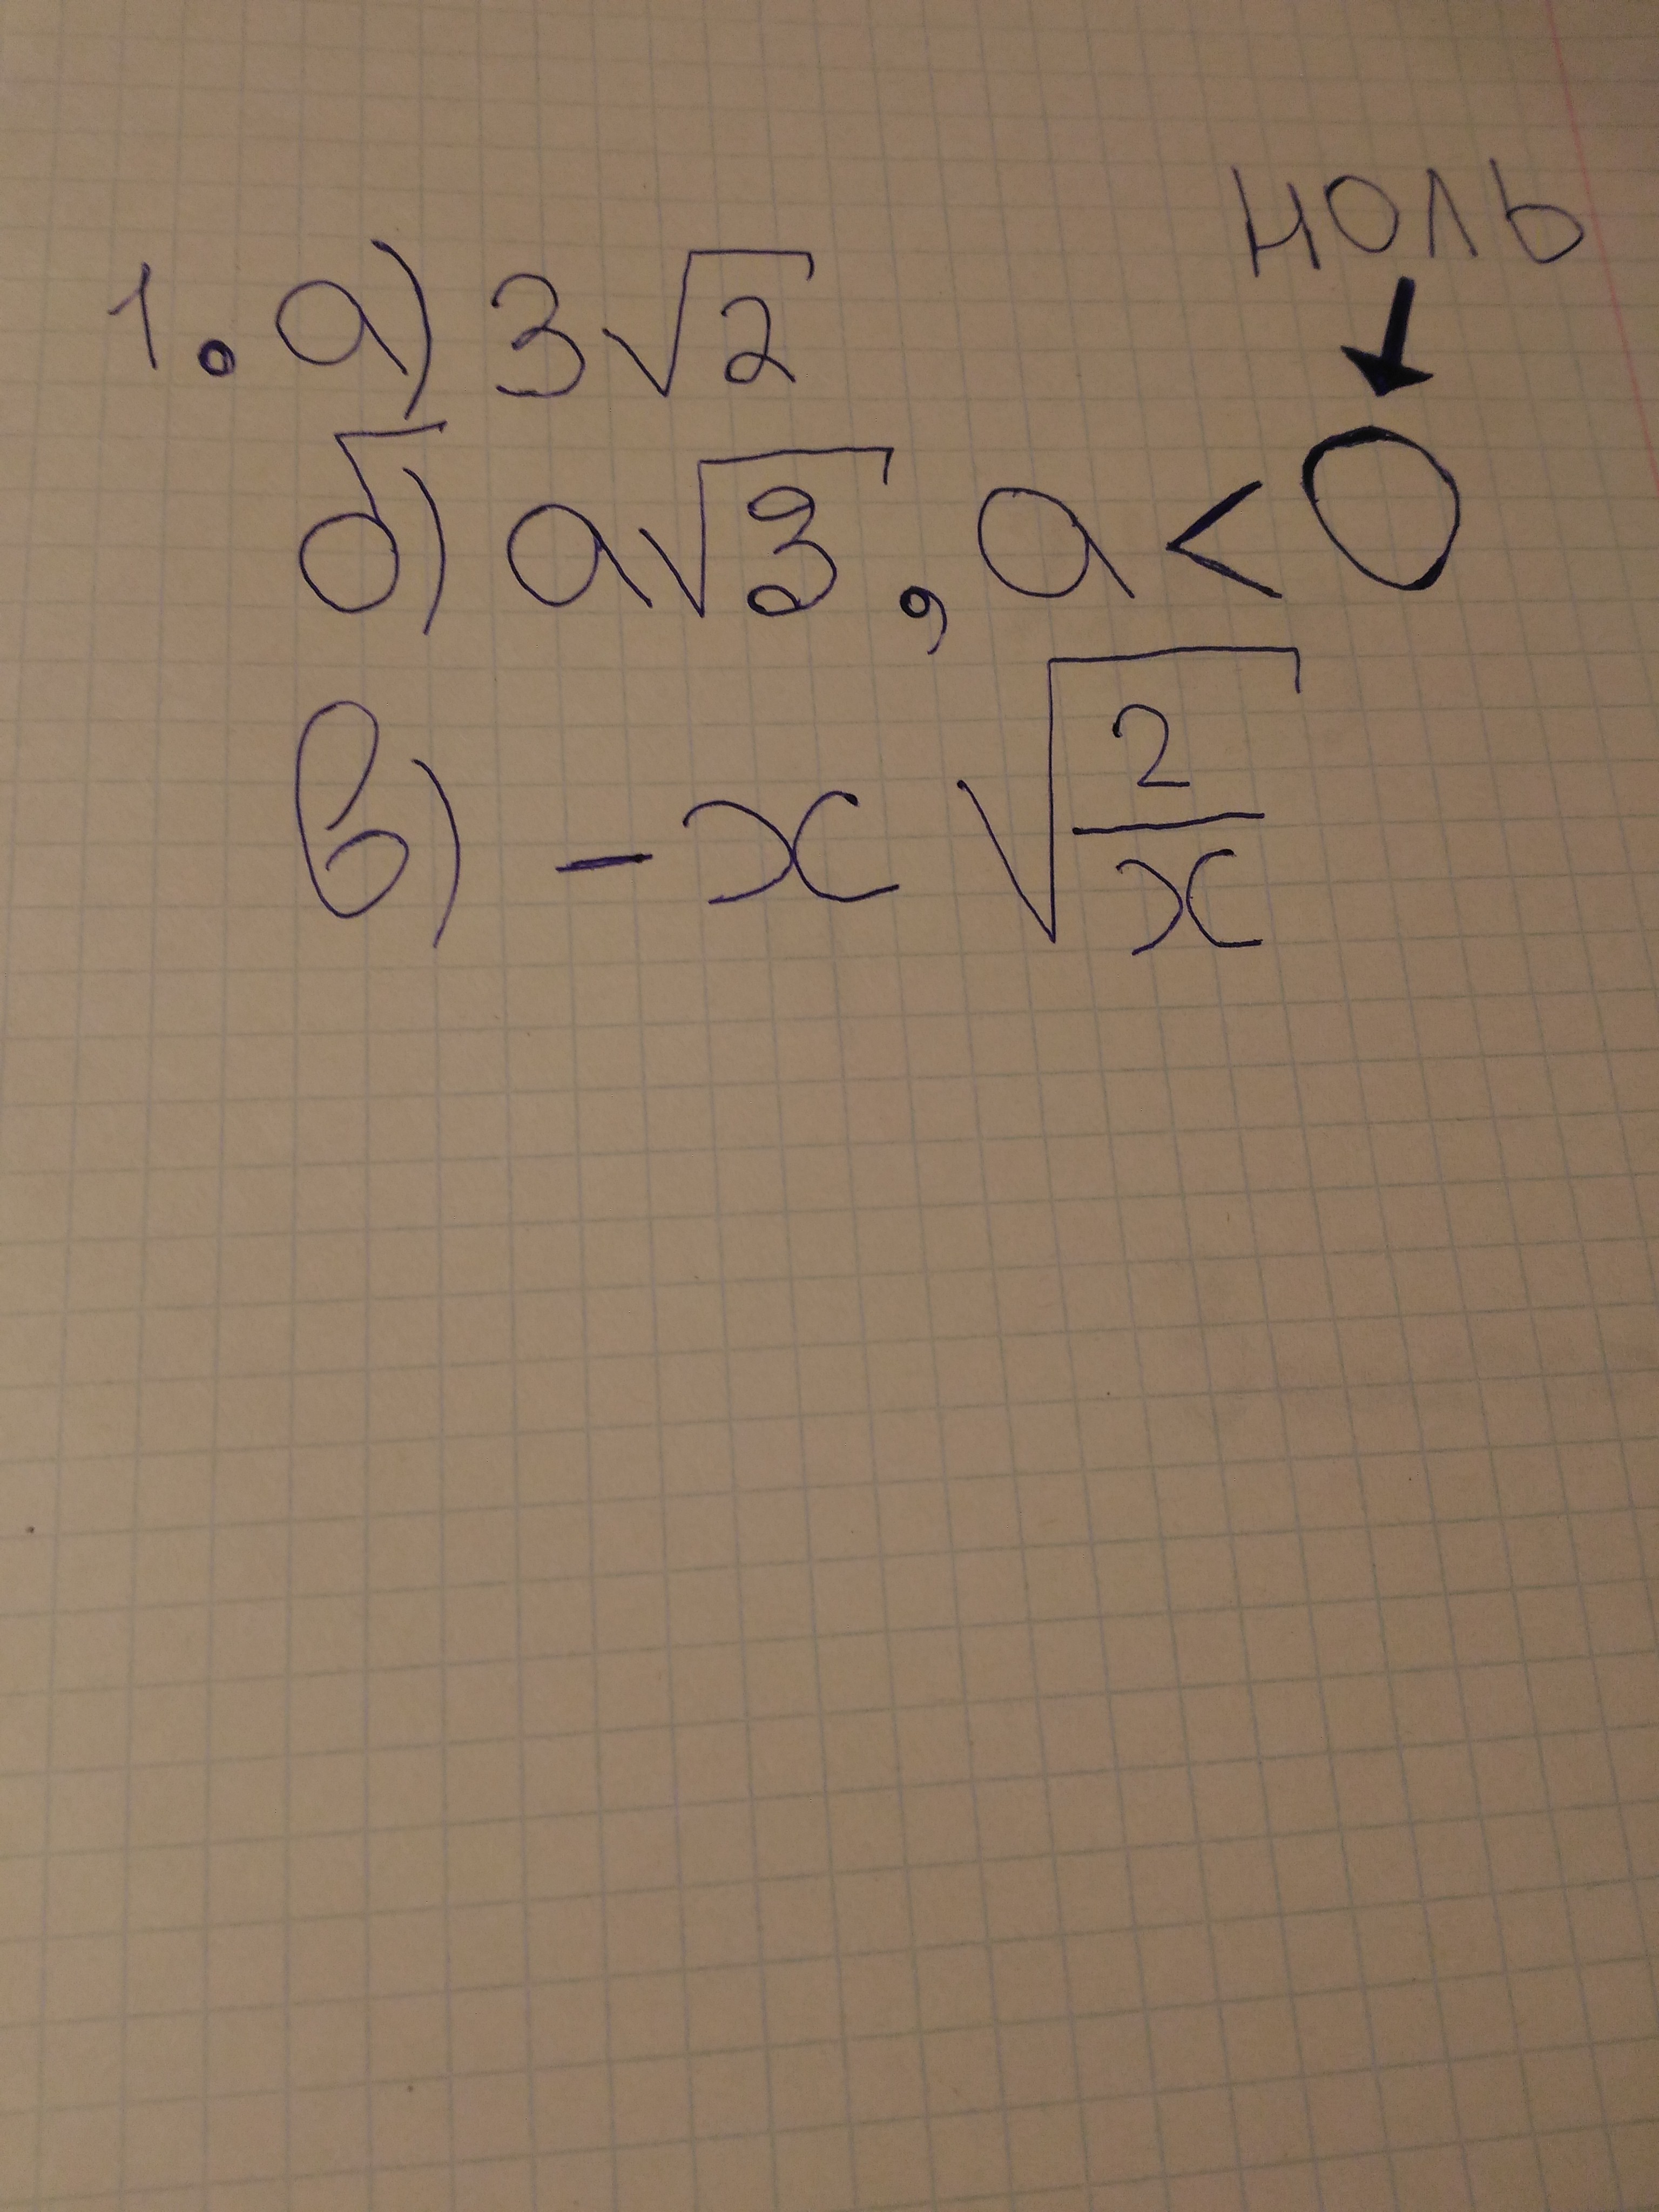 ноль
1. а) 3√2
б) a√3, a < 0
в) -x√(2/x)